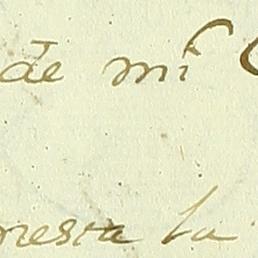 de mi
mesta la